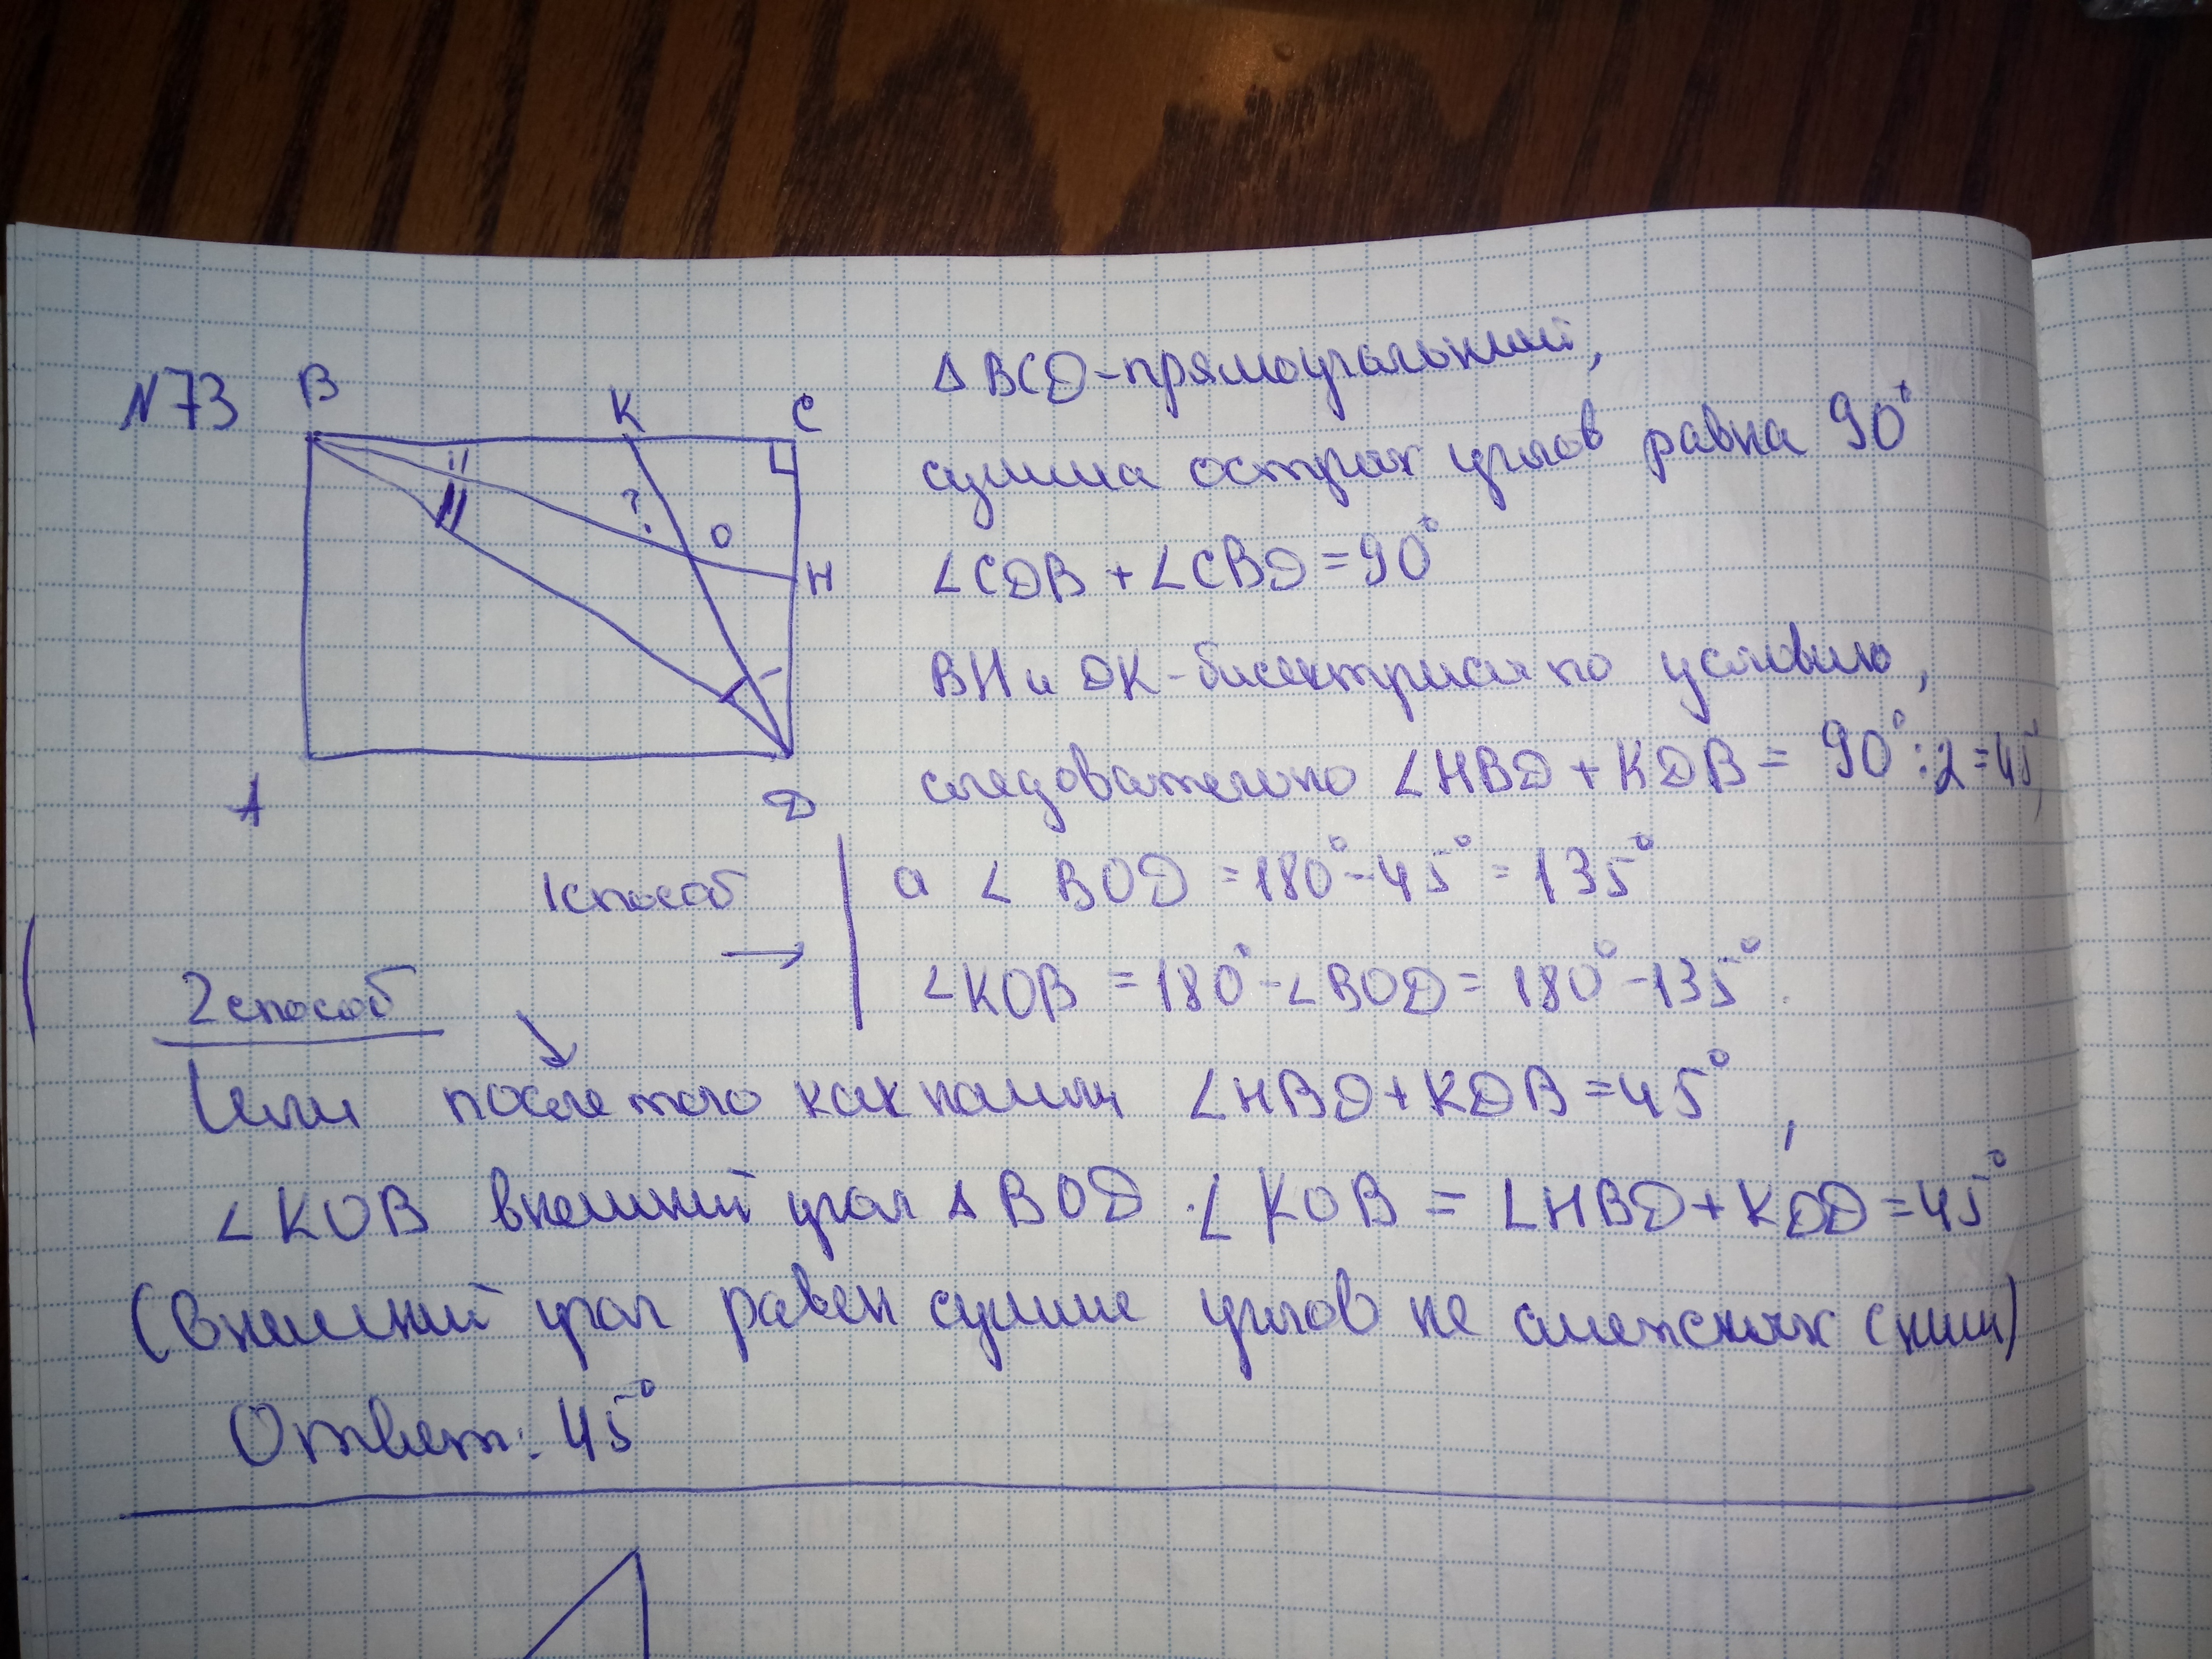 N73
B
K
C
?
O
H
A
D
Δ BCD - прямоугольный,
сумма острых углов равна 90°
∠CDB + ∠CBD = 90°
BH и DK - бисектрисы по условию,
следовательно ∠HBD + KDB = 90° : 2 = 45
1 способ
а ∠ BOD = 180° - 45° = 135°
∠KOB = 180° - ∠BOD = 180° - 135°
2 способ
или после того как нашли ∠HBD + KDB = 45°,
∠KOB внешний угол Δ BOD. ∠KOB = ∠HBD + KDD = 45°
(Внешний угол равен сумме углов не смежных с ним)
Ответ: 45°